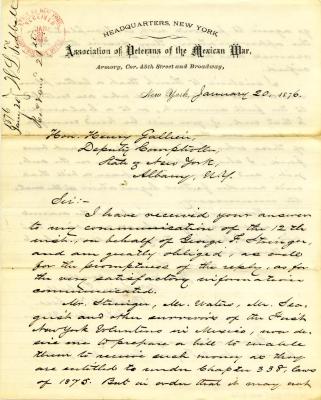 HEADQUARTERS, NEW YORK
Association of Veterans of the Mexican War,
Armory, Cor. 45th Street and Broadway,
New York, January 20, 1876.
Hon. Henry Gallien,
Deputy Comptroller,
State of New York,
Albany, N.Y.
Sir:-
I have received your answer
to my communication of the 12th
inst., on behalf of George F. Stringer,
and am greatly obliged, as well
for the promptness of the reply, as for
the very satisfactory information
communicated.
Mr. Stringer, Mr. Waters, Mr. Sea-
grist and other survivors of the First
New York Volunteers in Mexico, now de-
sire me to prepare a bill to enable
them to receive such money as they
are entitled to under Chapter 338, laws
of 1875. But in order that it may not